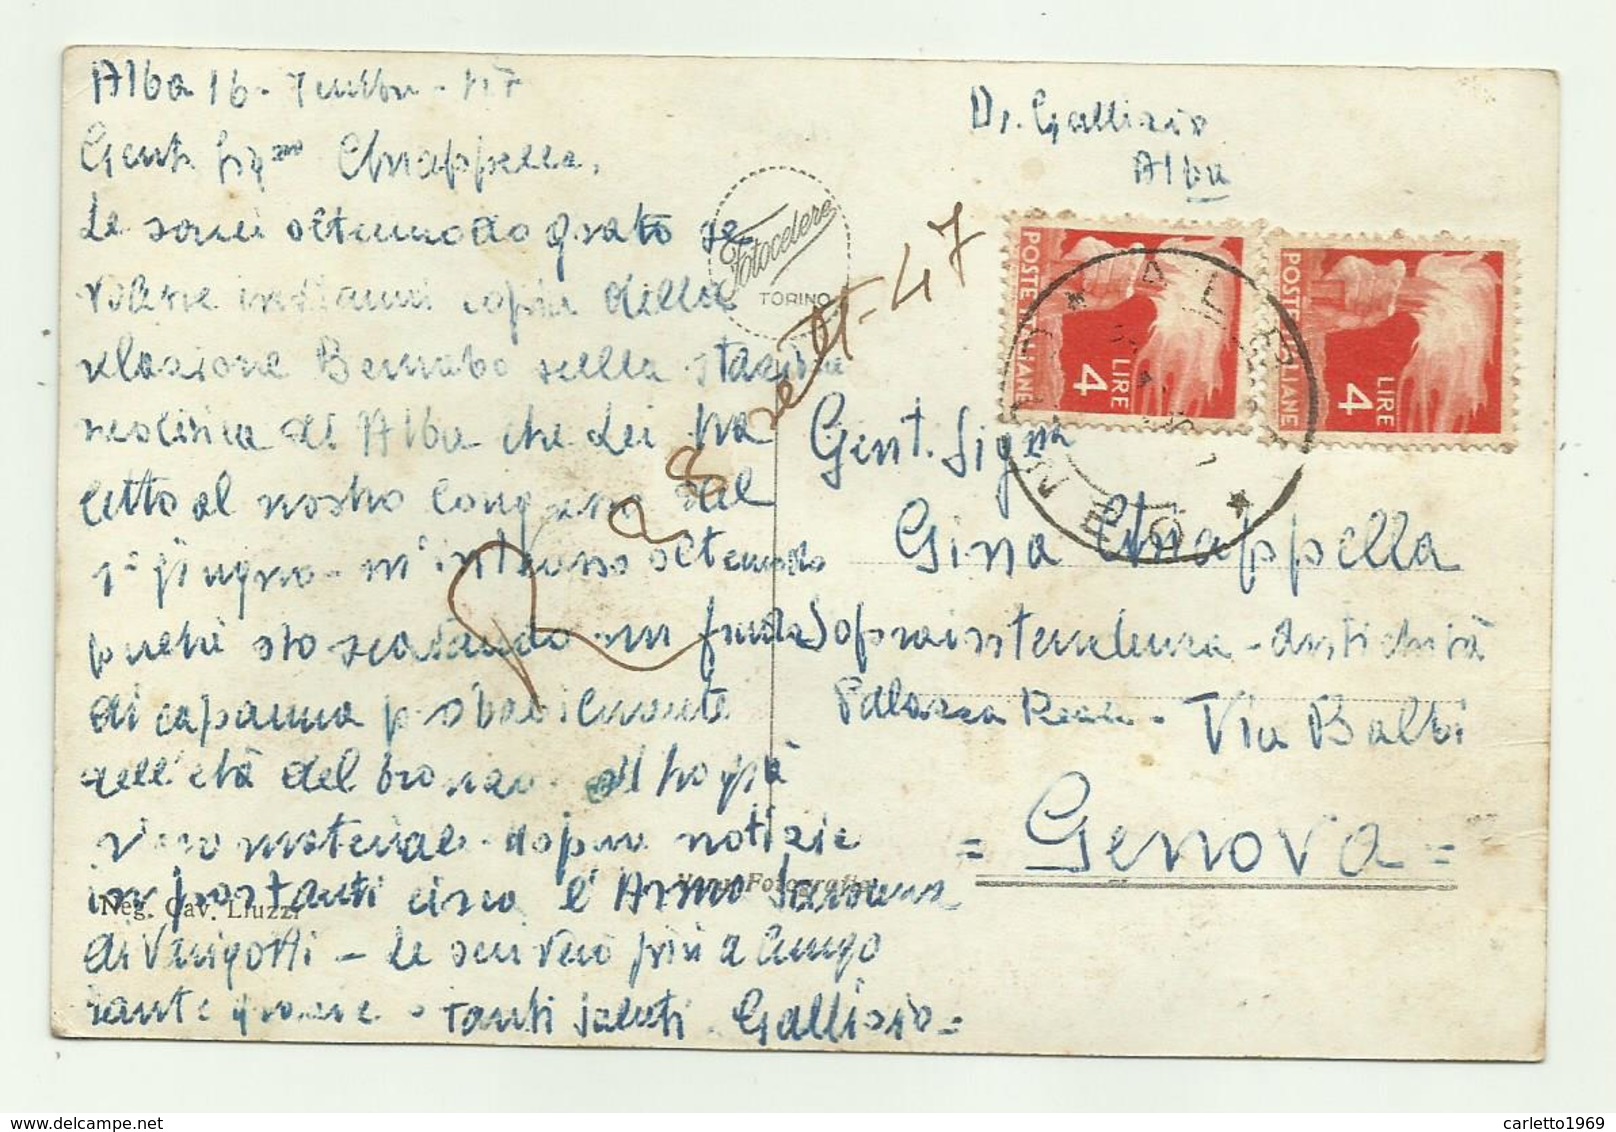 Alba 16- 7embre - 47
Gent. Signa Chiappella,
Le sarei oltremodo grato se
volesse inviarmi copia della
relazione Bernabò sulla stazione
neolitica di Alba che Lei ha
letto al nostro congresso del
1° giugno - m'interessa oltremodo
perché sto scavando un fondo
di capanna probabilmente
dell'età del bronzo. ed ho già
vario materiale - dopo notizie
importanti circa l'Arma
di Varigotti - Le scriverò più a lungo
tante grazie - tanti saluti Gallizio =
Fotocelere
TORINO
Neg. Cav. Liuzzi
Vera Fotografia
R a 8 sett - 47
Dr. Gallizio
Alba
POSTE ITALIANE
LIRE
4
POSTE ITALIANE
LIRE
4
Gent. Signna
Gina Chiappella
Sopraintendenza - Antichità
Palazzo Reale - Via Balbi
= Genova =
carletto1969